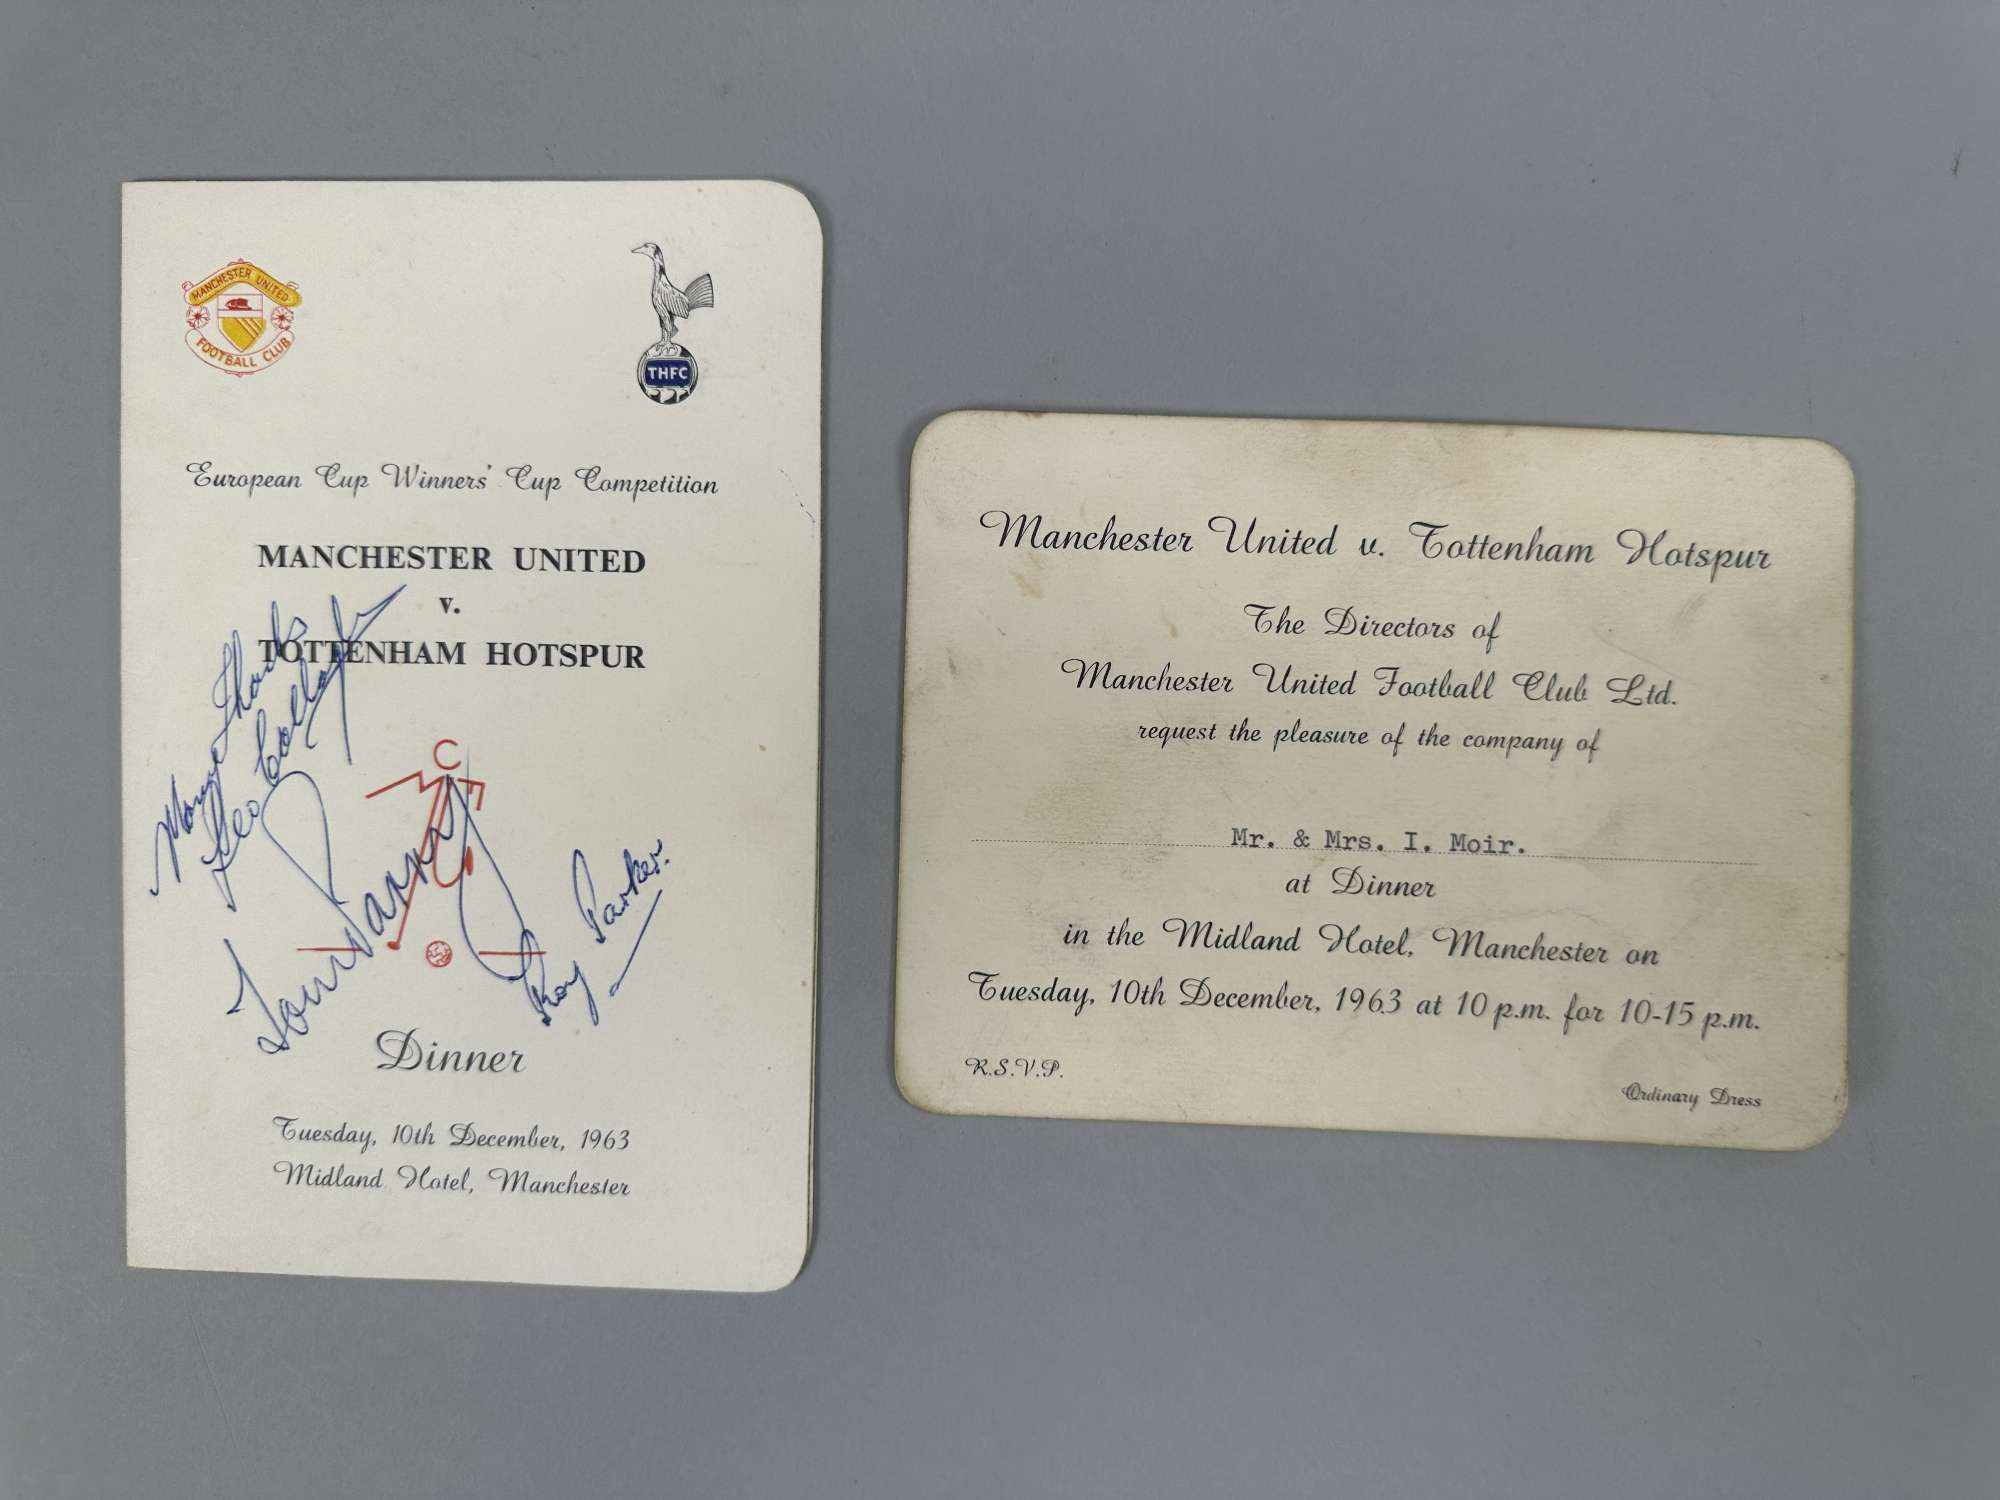 MANCHESTER UNITED
FOOTBALL CLUB
THFC
European Cup Winners' Cup Competition
MANCHESTER UNITED
v.
TOTTENHAM HOTSPUR
Many Thanks
Roy Parker.
Dinner
Tuesday, 10th December, 1963
Midland Hotel, Manchester
Manchester United v. Tottenham Hotspur
The Directors of
Manchester United Football Club Ltd.
request the pleasure of the company of
Mr. & Mrs. I. Moir.
at Dinner
in the Midland Hotel, Manchester on
Tuesday, 10th December, 1963 at 10 p.m. for 10-15 p.m.
R.S.V.P.
Ordinary Dress